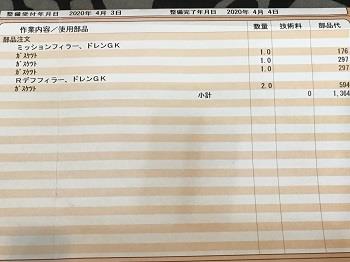 整備受付年月日 2020年 4月 3日 整備完了年月日 2020年 4月 4日
作業内容／使用部品 数量 技術料 部品代
部品注文
ミッションフィラー、ドレンGK
ｶﾞｽｹｯﾄ 1.0 176
ｶﾞｽｹｯﾄ 1.0 297
ｶﾞｽｹｯﾄ 1.0 297
Rデフフィラー、ドレンGK
ｶﾞｽｹｯﾄ 2.0 594
小計 0 1,364